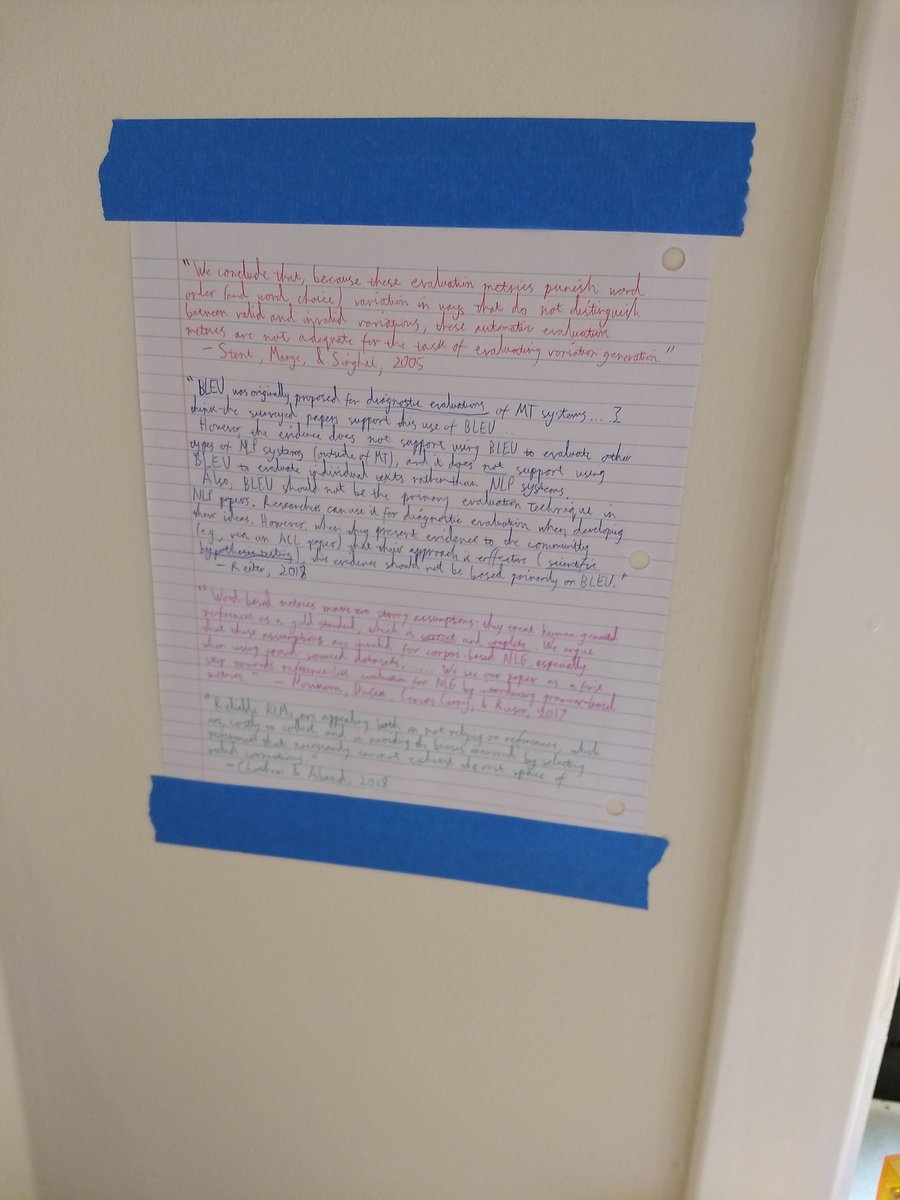 "We conclude that, because these evaluation metrics punish word
order (and word choice) variation in ways that do not distinguish
between valid and invalid variations, these automatic evaluation
metrics are not adequate for the task of evaluating variation generation."
- Stent, Marge, & Singhai, 2005
"BLEU was originally proposed for diagnostic evaluations of MT systems.... I
think the surveyed papers support this use of BLEU...
However, the evidence does not support using BLEU to evaluate other
types of NLP systems (outside of MT), and it does not support using
BLEU to evaluate individual texts rather than NLP systems.
Also, BLEU should not be the primary evaluation technique in
NLP papers. Researchers can use it for diagnostic evaluation when developing
their ideas. However, when they present evidence to the community
(e.g., via an ACL paper) that their approach is effective (scientific
hypothesis testing), this evidence should not be based primarily on BLEU."
- Reiter, 2018
"Word-based metrics make two strong assumptions: they treat human-generated
references as a gold standard, which is correct and complete. We argue
that these assumptions are invalid for corpus-based NLG, especially
when using crowd sourced datasets. .... We see our paper as a first
step towards reference-less evaluation for NLG by introducing grammar-based
metrics." - Novikova, Dušek, Cercas Curry, & Rieser, 2017
"Reliable RLMs are appealing both in not relying on references, which
are costly to collect, and in avoiding the biases incurred by selecting
references that necessarily cannot exhaust the vast space of
valid corrections."
- Choshen & Abend, 2018